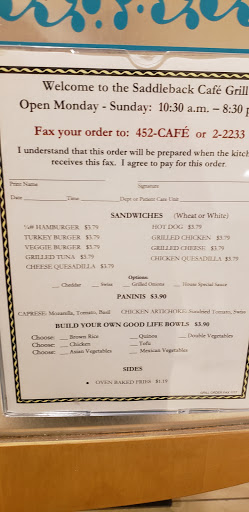 Welcome to the Saddleback Café Grill
Open Monday - Sunday: 10:30 a.m. – 8:30 p
Fax your order to: 452-CAFÉ or 2-2233
I understand that this order will be prepared when the kitch
receives this fax. I agree to pay for this order.
Print Name Signature
Date Time Dept or Patient Care Unit
SANDWICHES (Wheat or White)
¼# HAMBURGER $3.79 HOT DOG $3.79
TURKEY BURGER $3.79 GRILLED CHICKEN $3.79
VEGGIE BURGER $3.79 GRILLED CHEESE $3.79
GRILLED TUNA $3.79 CHICKEN QUESADILLA $3.79
CHEESE QUESADILLA $3.79
Options:
__ Cheddar __ Swiss __ Grilled Onions __ House Special Sauce
PANINIS $3.90
CAPRESE: Mozzarella, Tomato, Basil CHICKEN ARTICHOKE: Sundried Tomato, Swiss
BUILD YOUR OWN GOOD LIFE BOWLS $3.90
Choose: __ Brown Rice __ Quinoa __ Double Vegetables
Choose: __ Chicken __ Tofu
Choose: __ Asian Vegetables __ Mexican Vegetables
SIDES
• OVEN BAKED FRIES $1.19